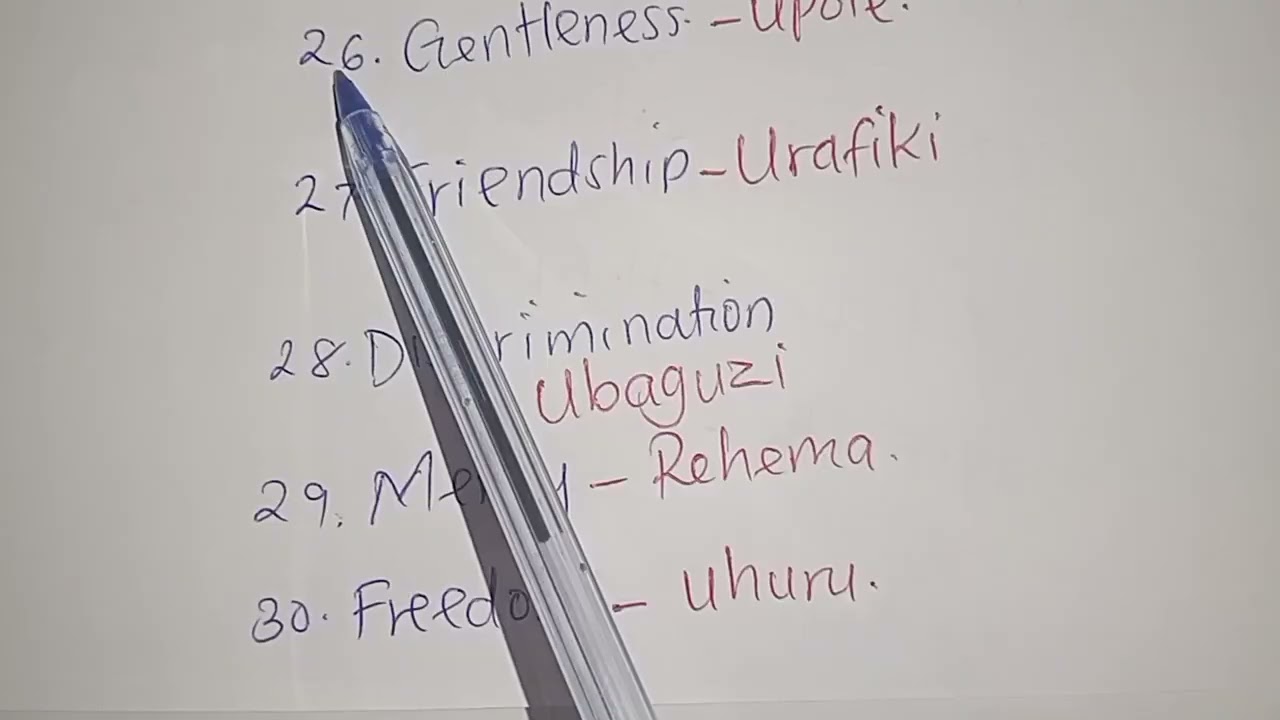 26. Gentleness - Upole.
27. Friendship - Urafiki
28. Discrimination
Ubaguzi
29. Mercy - Rehema.
30. Freedom - uhuru.